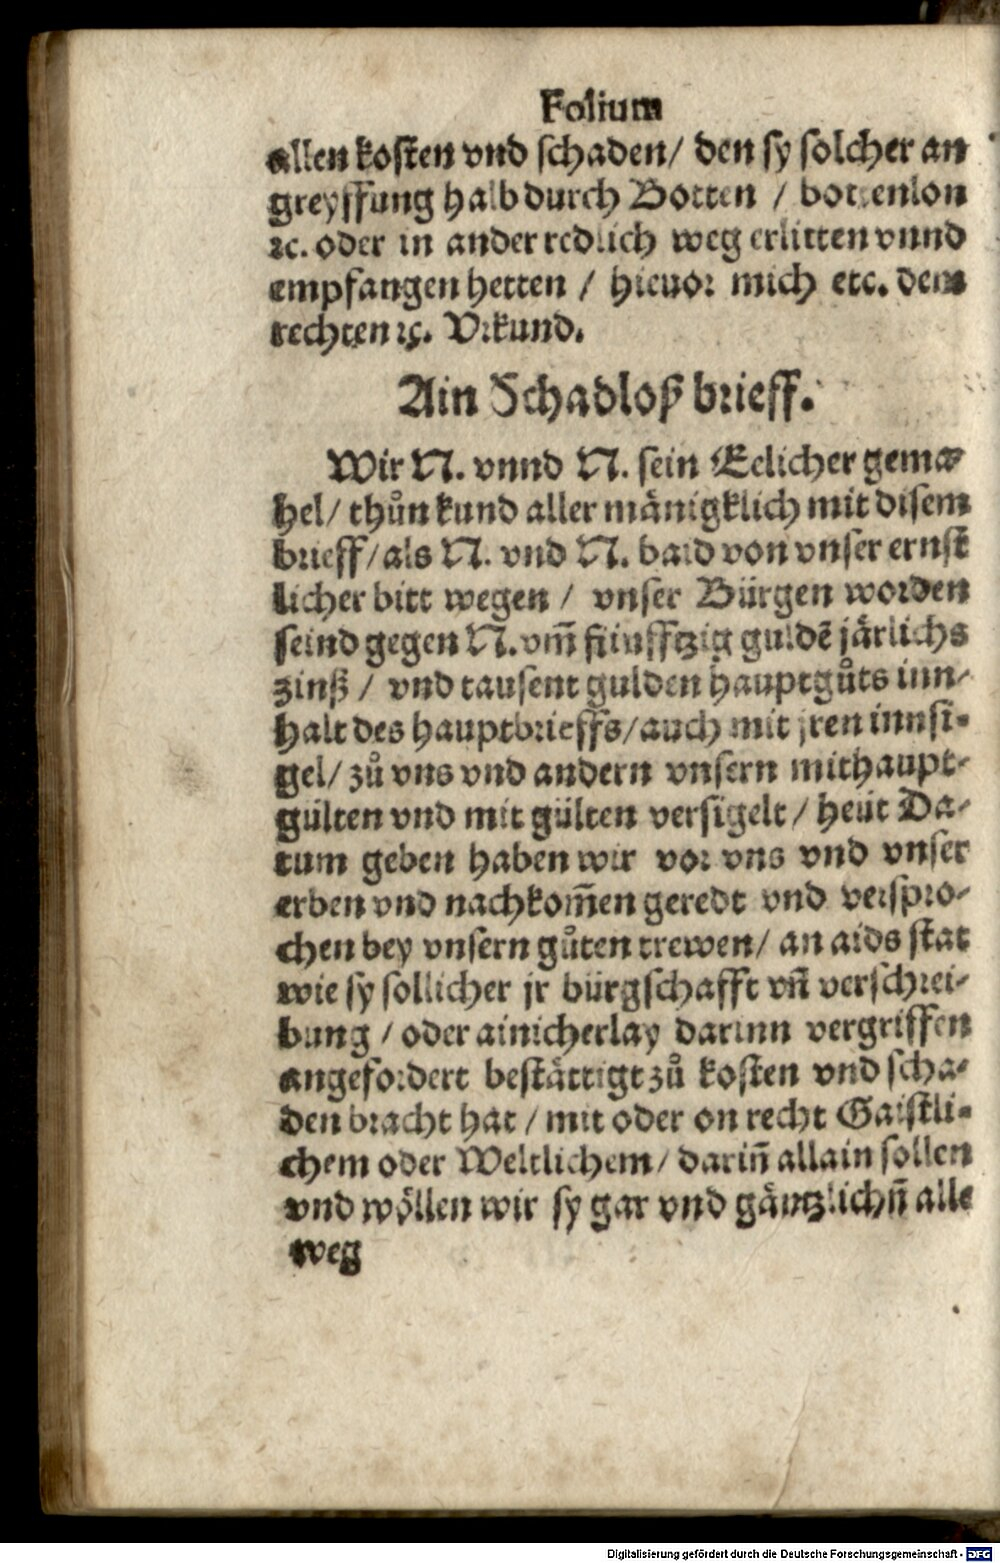 Folium
allen kosten vnd schaden/ den sy solcher an
greyffung halb durch Botten / bottenlon
ꝛc. oder in ander redlich weg erlitten vnnd
empfangen hetten / hieuor mich etc. dem
rechten ꝛc. Vrkund.
Ain Schadloß brieff.
Wir N. vnnd N. sein Eelicher gema⸗
hel/ thůn kund aller mänigklich mit disem
brieff/ als N. vnd N. baid von vnser ernst
licher bitt wegen / vnser Bürgen worden
seind gegen N. vm̃ fünfftzig guldẽ järlichs
zinß / vnd tausent gulden hauptgůts inn⸗
halt des hauptbrieffs/ auch mit jren innsi⸗
gel/ zů vns vnd andern vnsern mithaupt⸗
gülten vnd mit gülten versigelt / heüt Da⸗
tum geben haben wir vor vns vnd vnser
erben vnd nachkom̃en geredt vnd verspro⸗
chen bey vnsern gůten trewen/ an aids stat
wie sy sollicher jr bürgschafft vñ verschrei⸗
bung / oder ainicherlay darinn vergriffen
angefordert bestättigt zů kosten vnd scha⸗
den bracht hat / mit oder on recht Gaistli⸗
chem oder Weltlichem/ dariñ allain sollen
vnd wöllen wir sy gar vnd gäntzlichñ alle
weg
Digitalisierung gefördert durch die Deutsche Forschungsgemeinschaft - DFG